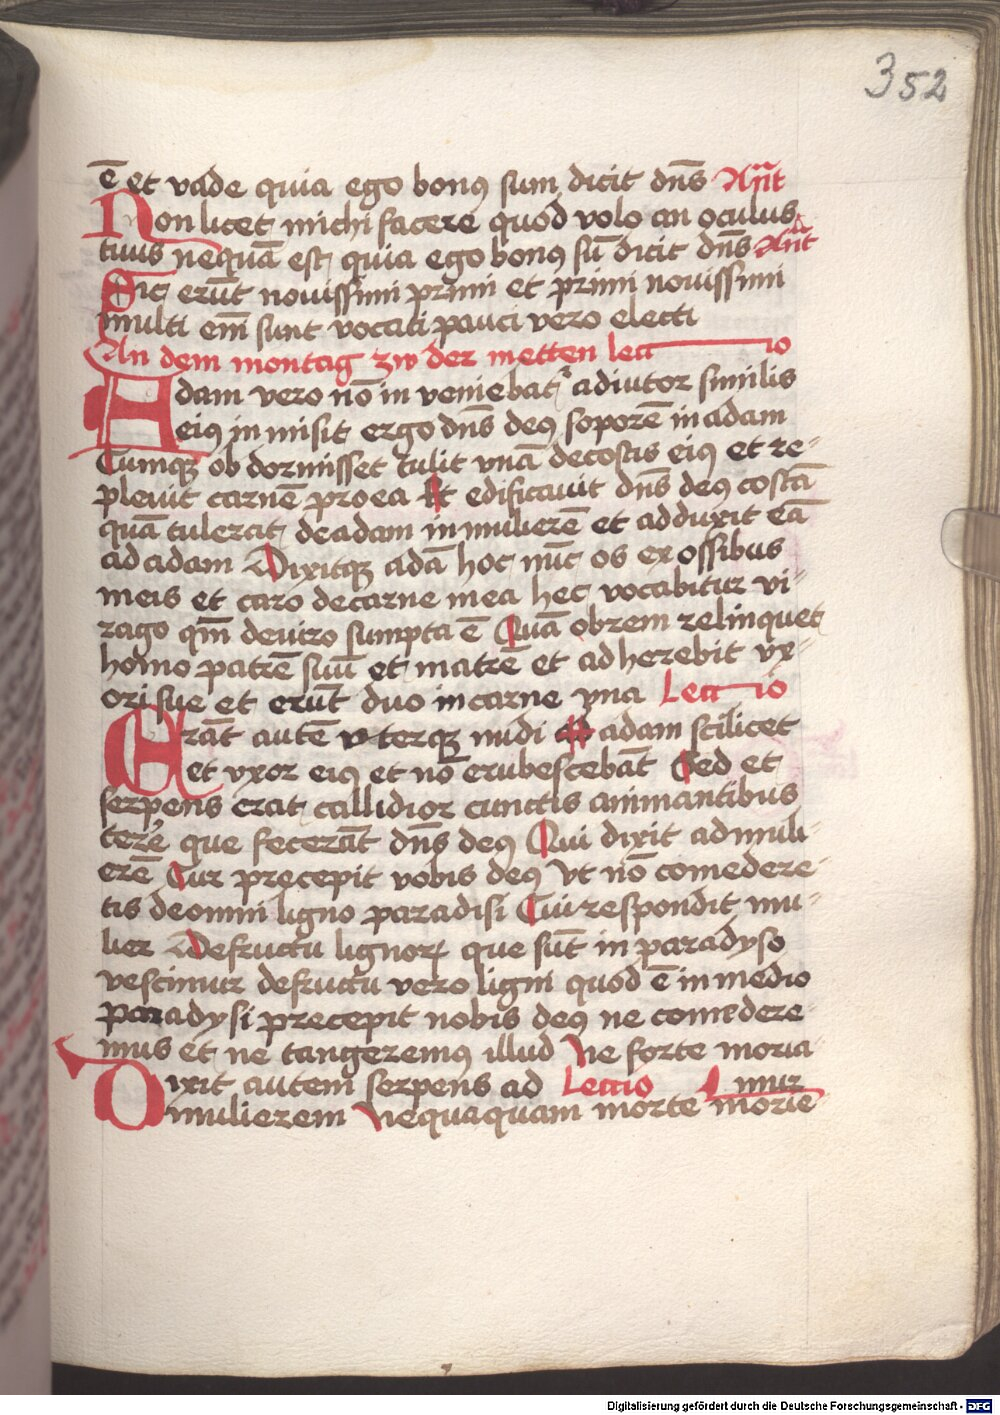 352
ē et vade quia ego bonꝰ sum dicit dn̄s An̄t
Non licet michi facere quod volo an oculus
tuus nequā est quia ego bonꝰ sū dicit dn̄s An̄t
Sic erūt nouissimi primi et primi nouissimi
multi em̄ sunt vocati pauci vero electi
An dem montag zw der metten lectio
Adam vero nō in veniebatᷣ adiutor similis
eiꝰ in misit ergo dn̄s deꝰ soporē in adam
Cumqꝫ ob dormisset tulit vnā de costis eiꝰ et re⸗
pleuit carnē pro ea Et edificauit dn̄s deꝰ costā
quā tulerat de adam in mulierē et adduxit eā
ad adam Dixitqꝫ adā hoc nūc os ex ossibus
meis et caro de carne mea hec vocabitur vi⸗
rago qm̄ de viro sumpta ē Quā ob rem relinquet
homo patrē suū et matrē et ad herebit vx⸗
ori sue et erūt duo in carne vna Lectio
Erāt autē vterqꝫ nudi adam scilicet
et vxor eiꝰ et nō erubescebāt Sed et
serpens erat callidior cunctis animantibus
terre que fecerāt dn̄s deꝰ Qui dixit ad muli⸗
erē Cur precepit vobis deꝰ vt nō comedere⸗
tis de omni ligno paradisi Cui respondit mu⸗
lier De fructu lignoꝝ que sūt in paradyso
vescimur de fructu vero ligni quod ē in medio
paradysi precepit nobis deꝰ ne comedere⸗
mus et ne tangeremꝰ illud Ne forte moria⸗
Dixit autem serpens ad Lectio mur
mulierem Nequaquam morte morie⸗
Digitalisierung gefördert durch die Deutsche Forschungsgemeinschaft - DFG